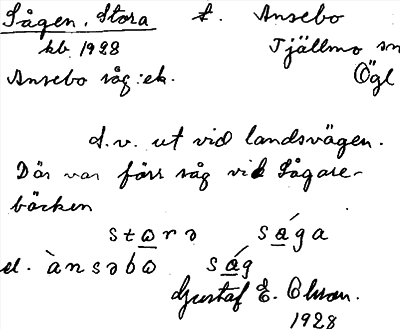 Sågen, Stora t. Ansebo
kb. 1928 Tjällmo sn
Ansebo såg: ek. Ögl
d.v. ut vid landsvägen.
Där var förr såg vid Sågare-
bäcken
stωrə såga
el. ànsəbω såg
Gustaf E. Olsson.
1928